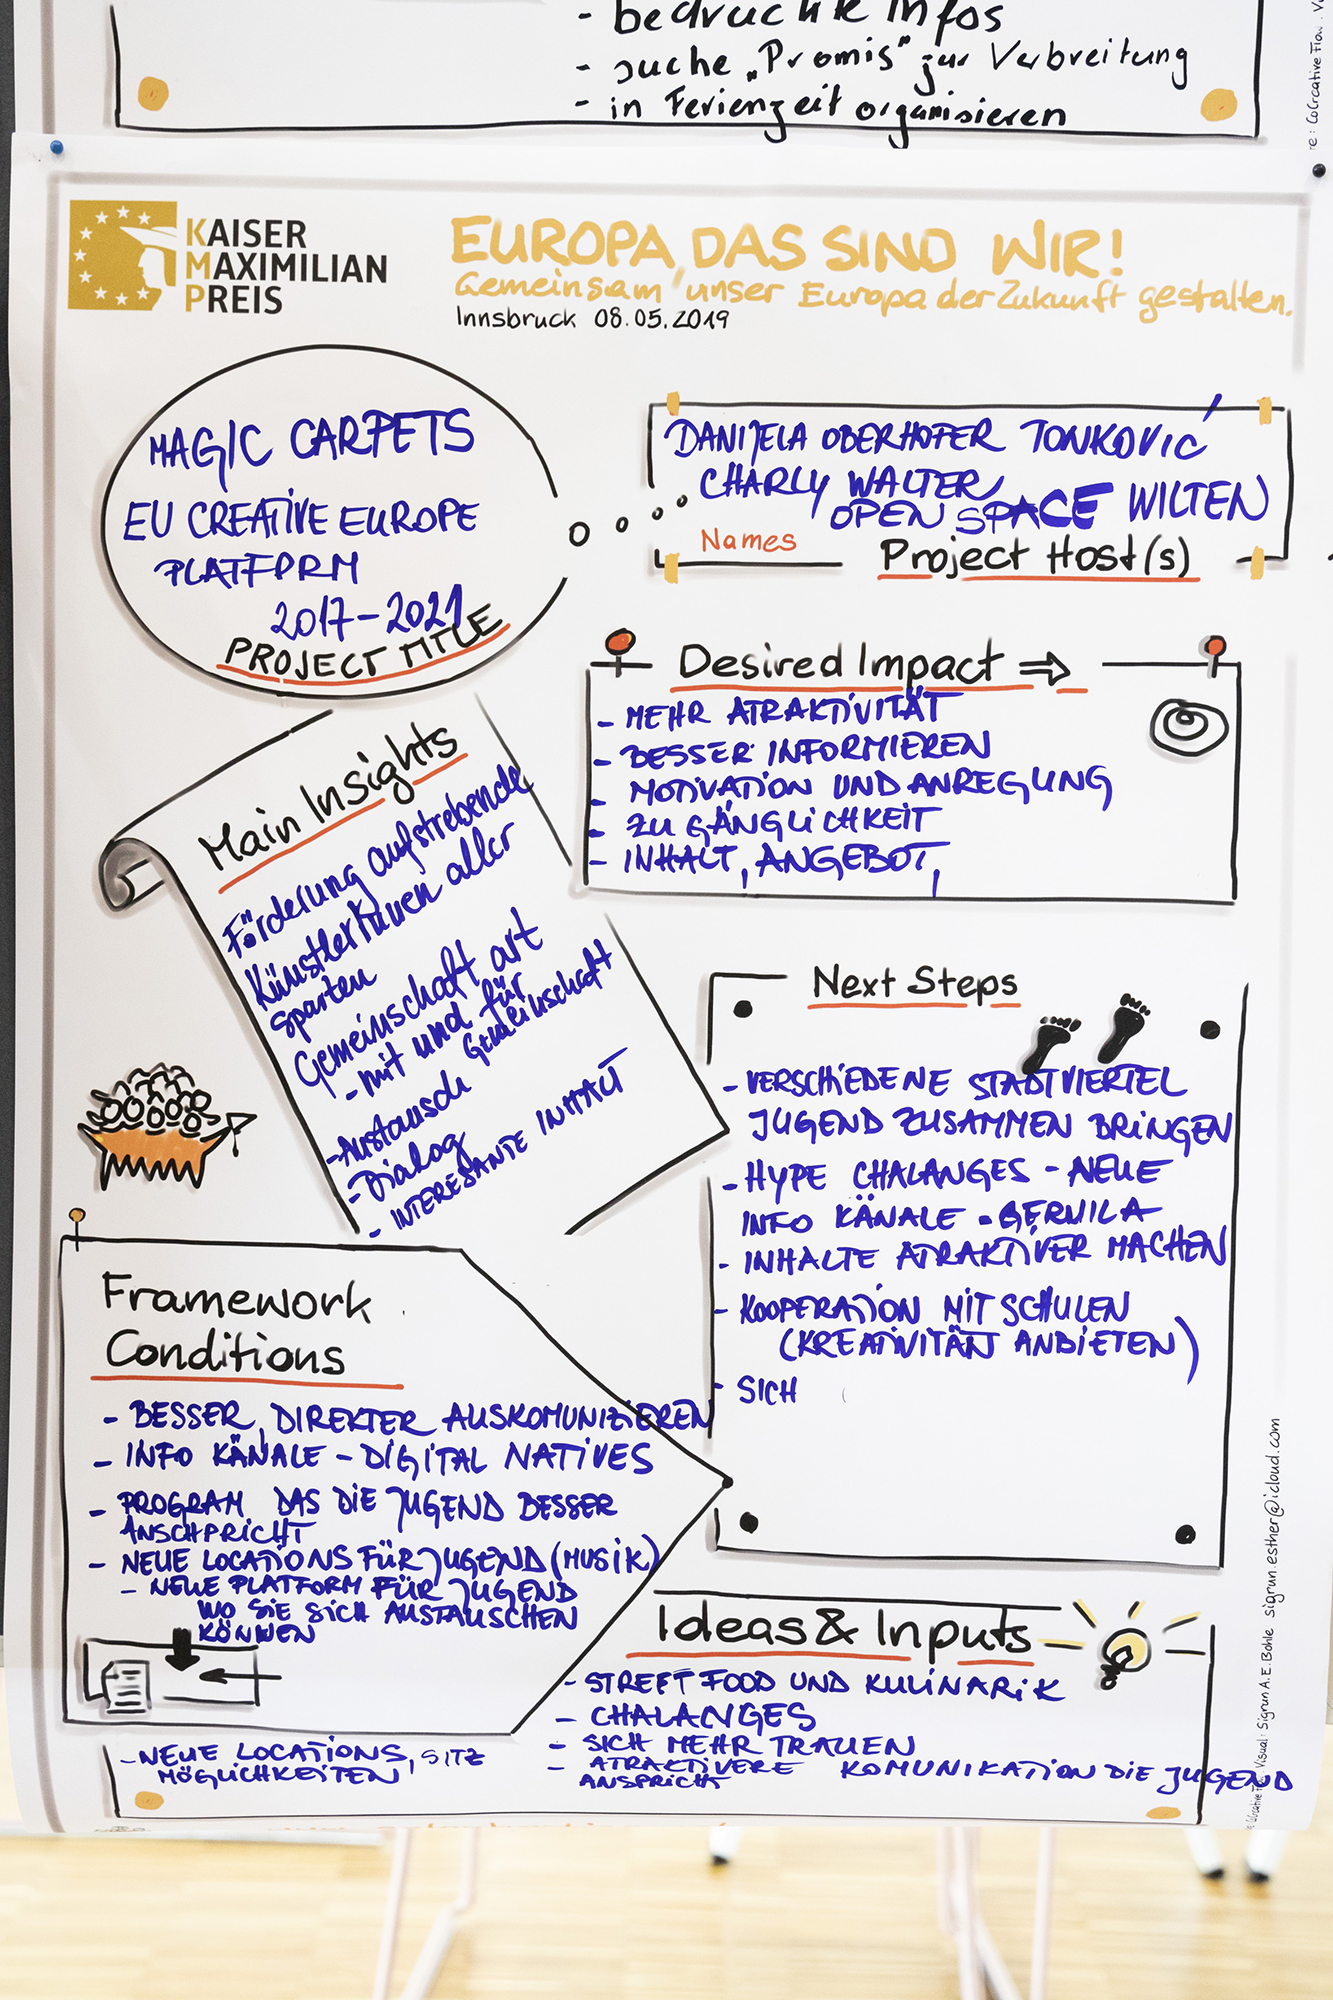 - bedruckte Infos
- suche „Promis" zur Verbreitung
- in Ferienzeit organisieren
KAISER
MAXIMILIAN
PREIS
EUROPA, DAS SIND WIR!
Gemeinsam unser Europa der Zukunft gestalten.
Innsbruck 08.05.2019
MAGIC CARPETS
EU CREATIVE EUROPE
PLATFORM
2017-2021
PROJECT TITLE
DANIJELA OBERHOFER TONKOVIĆ
CHARLY WALTER
OPEN SPACE WILTEN
Names
Project Host(s)
Desired Impact
- MEHR ATRAKTIVITÄT
- BESSER INFORMIEREN
- MOTIVATION UND ANREGUNG
- ZUGÄNGLICHKEIT
- INHALT, ANGEBOT,
Main Insights
Förderung aufstrebende
KünstlerInnen aller
sparten
Gemeinschaft art
- mit und für
Gemeinschaft
- Austausch
- Dialog
- INTERESANTE INHALT
Next Steps
- VERSCHIEDENE STADTVIERTEL
JUGEND ZUSAMMEN BRINGEN
- HYPE CHALANGES - NEUE
INFO KÄNALE - GERUILA
- INHALTE ATRAKTIVER MACHEN
- KOOPERATION MIT SCHULEN
(KREATIVITÄT ANBIETEN)
- SICH
Framework
Conditions
- BESSER, DIREKTER AUSKOMUNIZIEREN
- INFO KÄNALE - DIGITAL NATIVES
- PROGRAM DAS DIE JUGEND BESSER
ANSCHPRICHT
- NEUE LOCATIONS FÜR JUGEND (MUSIK)
- NEUE PLATFORM FÜR JUGEND
WO SIE SICH AUSTAUSCHEN
KÖNNEN
- NEUE LOCATIONS, SITZ
MÖGLICHKEITEN
Ideas & Inputs
- STREET FOOD UND KULINARIK
- CHALANGES
- SICH MEHR TRAUEN
- ATRAKTIVERE KOMUNIKATION DIE JUGEND
ANSPRICHT
Visual: Sigrun A.E. Bohle sigrun.esther@icloud.com
re: CoCreative Flow.